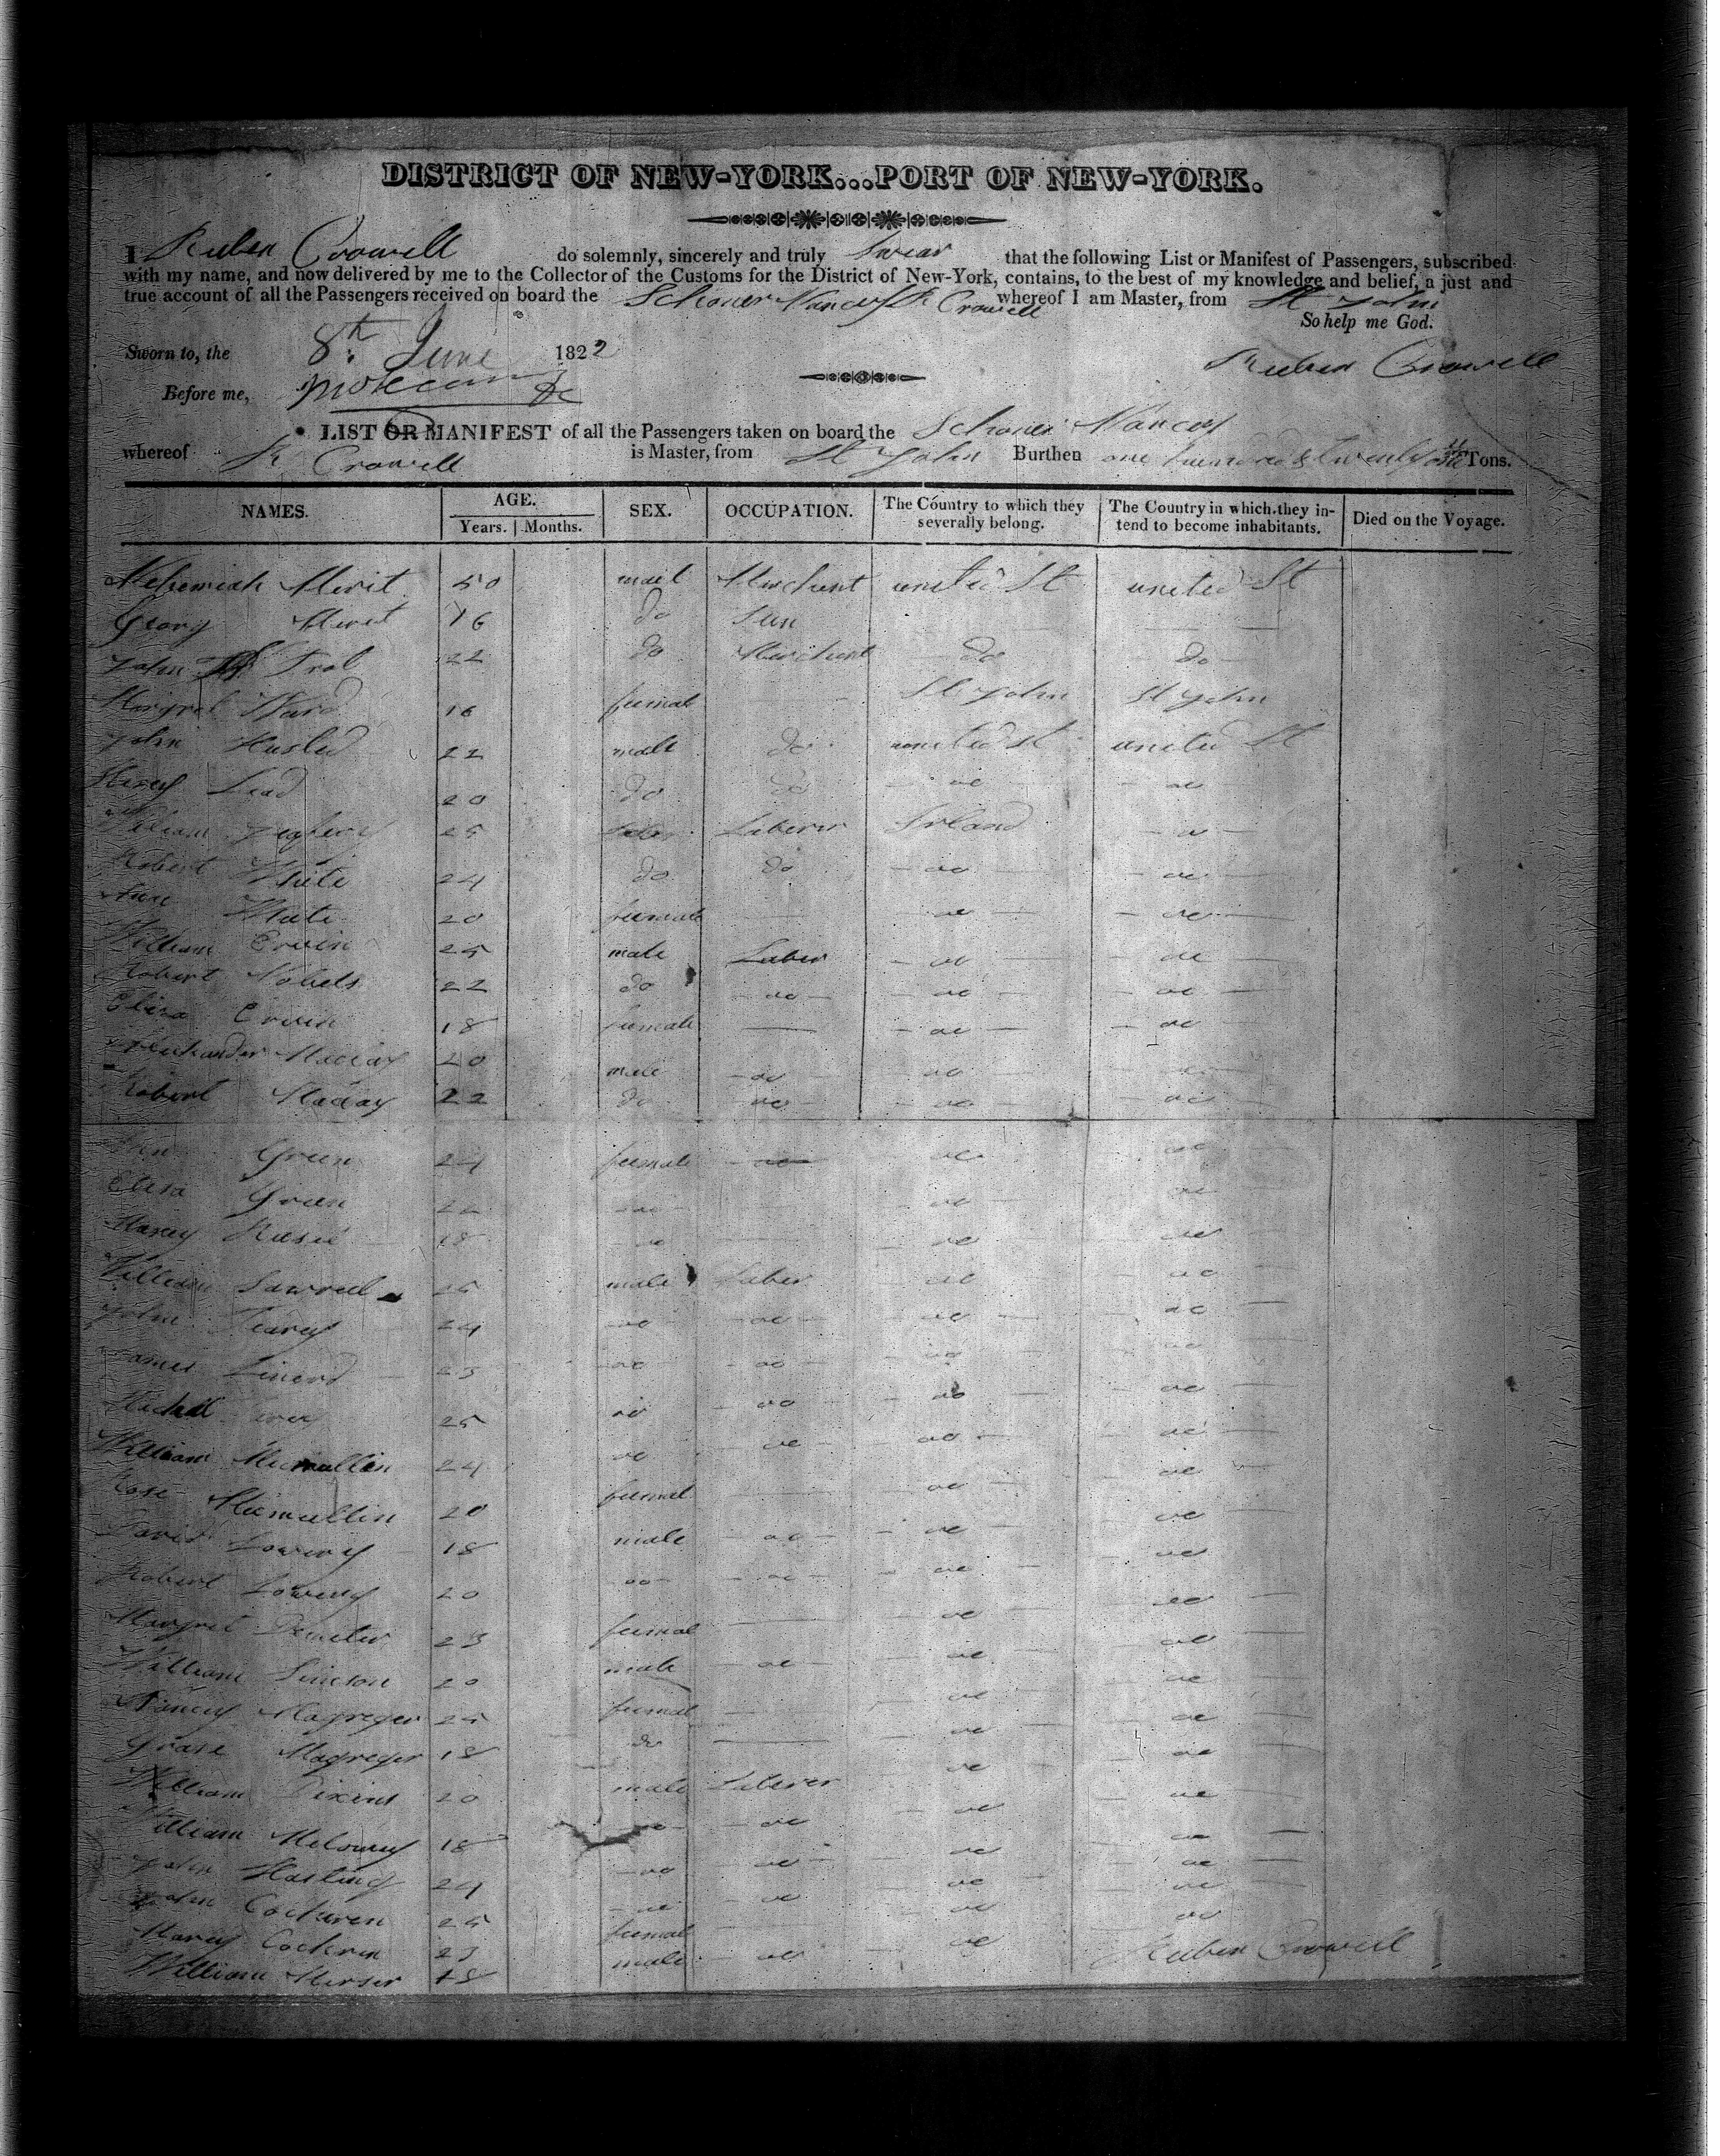 DISTRICT OF NEW-YORK...PORT OF NEW-YORK.
I Ruben Crowell do solemnly, sincerely and truly Swear that the following List or Manifest of Passengers, subscribed
with my name, and now delivered by me to the Collector of the Customs for the District of New-York, contains, to the best of my knowledge and belief, a just and
true account of all the Passengers received on board the Schoner Nancy R Crowell whereof I am Master, from St John
So help me God.
Sworn to, the 8th June 1822
Ruben Crowell
Before me,
LIST OR MANIFEST of all the Passengers taken on board the Schoner Nancy
whereof R Crowell is Master, from St John Burthen one hundred & twenty Tons.
NAMES. AGE. SEX. OCCUPATION. The Country to which they severally belong. The Country in which they intend to become inhabitants. Died on the Voyage.
Years. Months.
Nehemiah Merit 50 mail Merchent united St united St
Georg Merit 16 do Sun
John Trol 22 do Merchent do do
Margret Ward 16 femal St John St John
John Husted 22 male do united St united St
Lead 20 do do do do
William 25 Laberer Irland do
Robert White 24 do do do do
Ann White 20 female do do
William Ervin 25 male Laber do do
Robert Nobels 22 do do do do
Eliza Ervin 18 female do do
Macay 20 male do do do
Robert Macay 22 do do do do
Green 24 female do do do
Elisa Green 22 do do do
18 do do do
William 25 male Laber do do
John 24 do do do do
James Linerd 23 do do do do
Michal 25 do do do do
William Mcmullin 24 do do do do
Rose Mcmullin 20 femal do do
David Lowery 18 male do do do
Robert Lowery 20 do do do do
Margret 23 femal do do
William Simson 20 male do do do
Nancy Magreger 25 femal do do
Grase Magreger 18 do do do
William Dixins 20 male Laberer do do
William 18 do do do do
John Hasting 24 do do do do
John Cochren 25 do do do do
Marey Cochren 23 femal do do
William Merser 18 male do do
Ruben Crowell